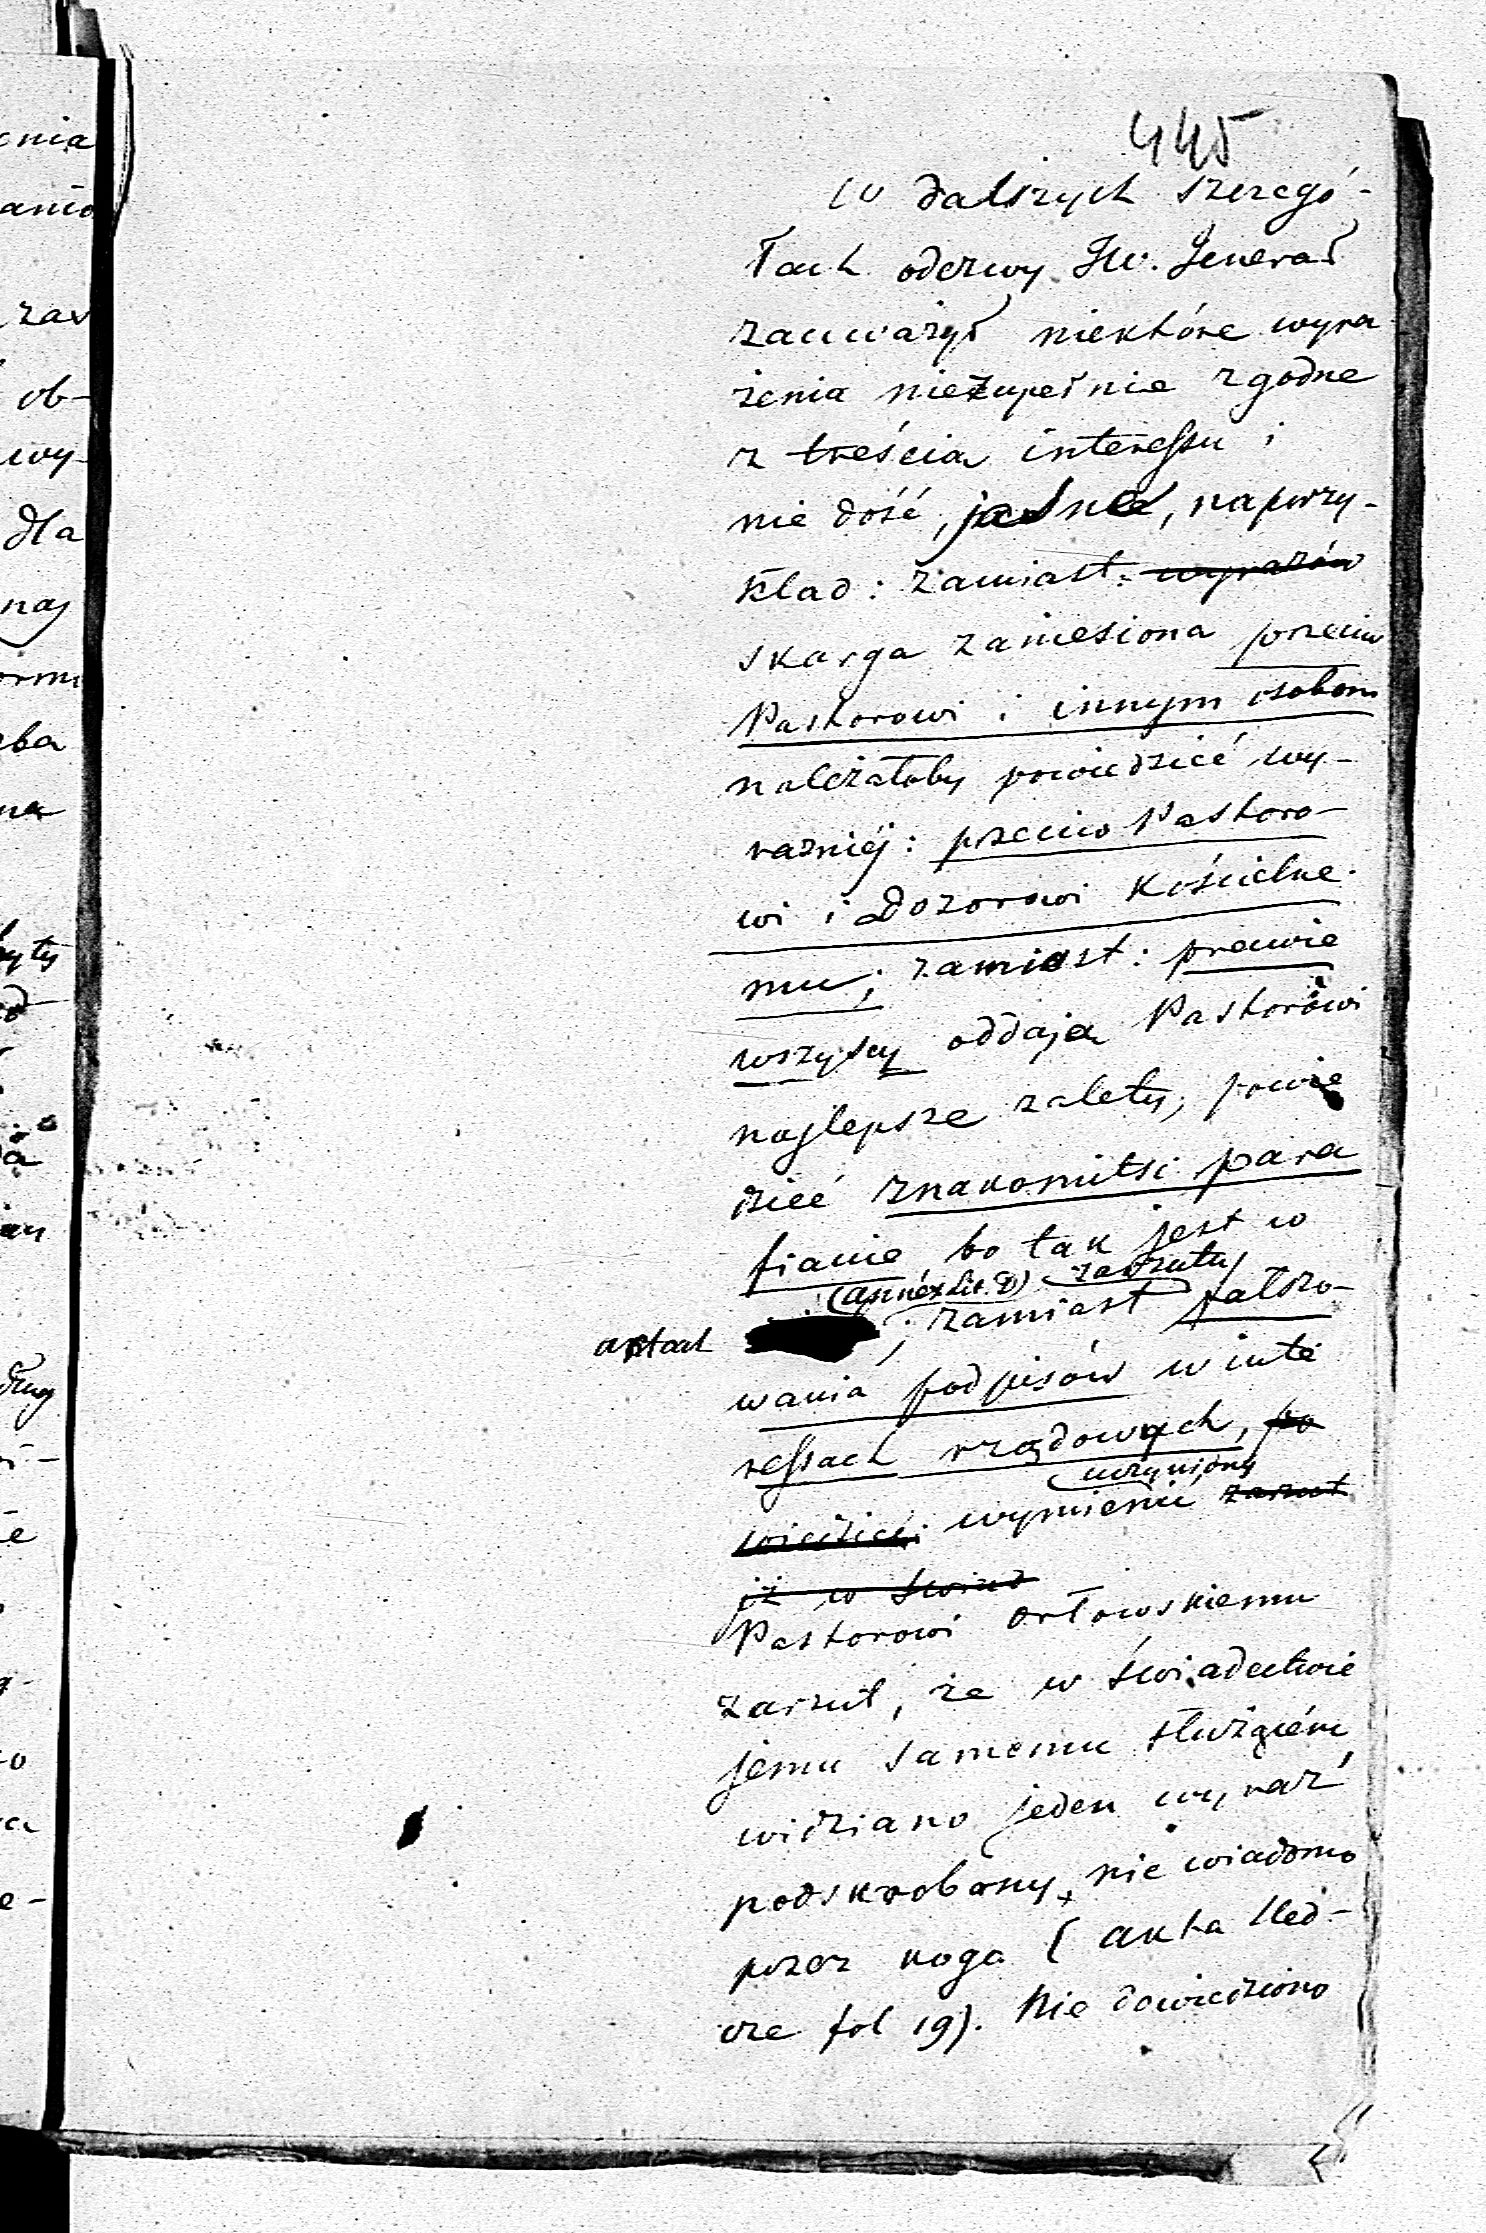 445
w dalszych szczegó-
łach odezwy JW. Jenerał
zauważył niektóre wyra
żenia niezupełnie zgodne
z treścią interessu i
nie dość, jasne, naprzy-
kład: zamiast: wyrazów
skarga zaniesiona przeciw
Pastorowi i innym osobom
należałoby powiedzieć wy-
razniéj: przeciw Pastoro-
wi i Dozorowi Kościelne-
mu; zamiast: prawie
wszyscy oddają Pastorowi
najlepsze zalety, powie
dzieć znakomitsi para
fianie bo tak jest w
(annex Lit. D) zarzutu
aktach ; zamiast fałszo-
wania podpisów w inte
ressach rządowych, po
uczyniony
wiedzieć: wymienić zarzut
iż w świad
Pastorowi Orłowskiemu
zarzut, że w świadectwie
jemu samemu służącém
widziano jeden wyraz
podskrobany, nie wiadomo
przez kogo (akta śled-
cze fol 19). Nie dowiedziono
cnia
anio
zav
ob-
wy-
dla
naj
eba
na